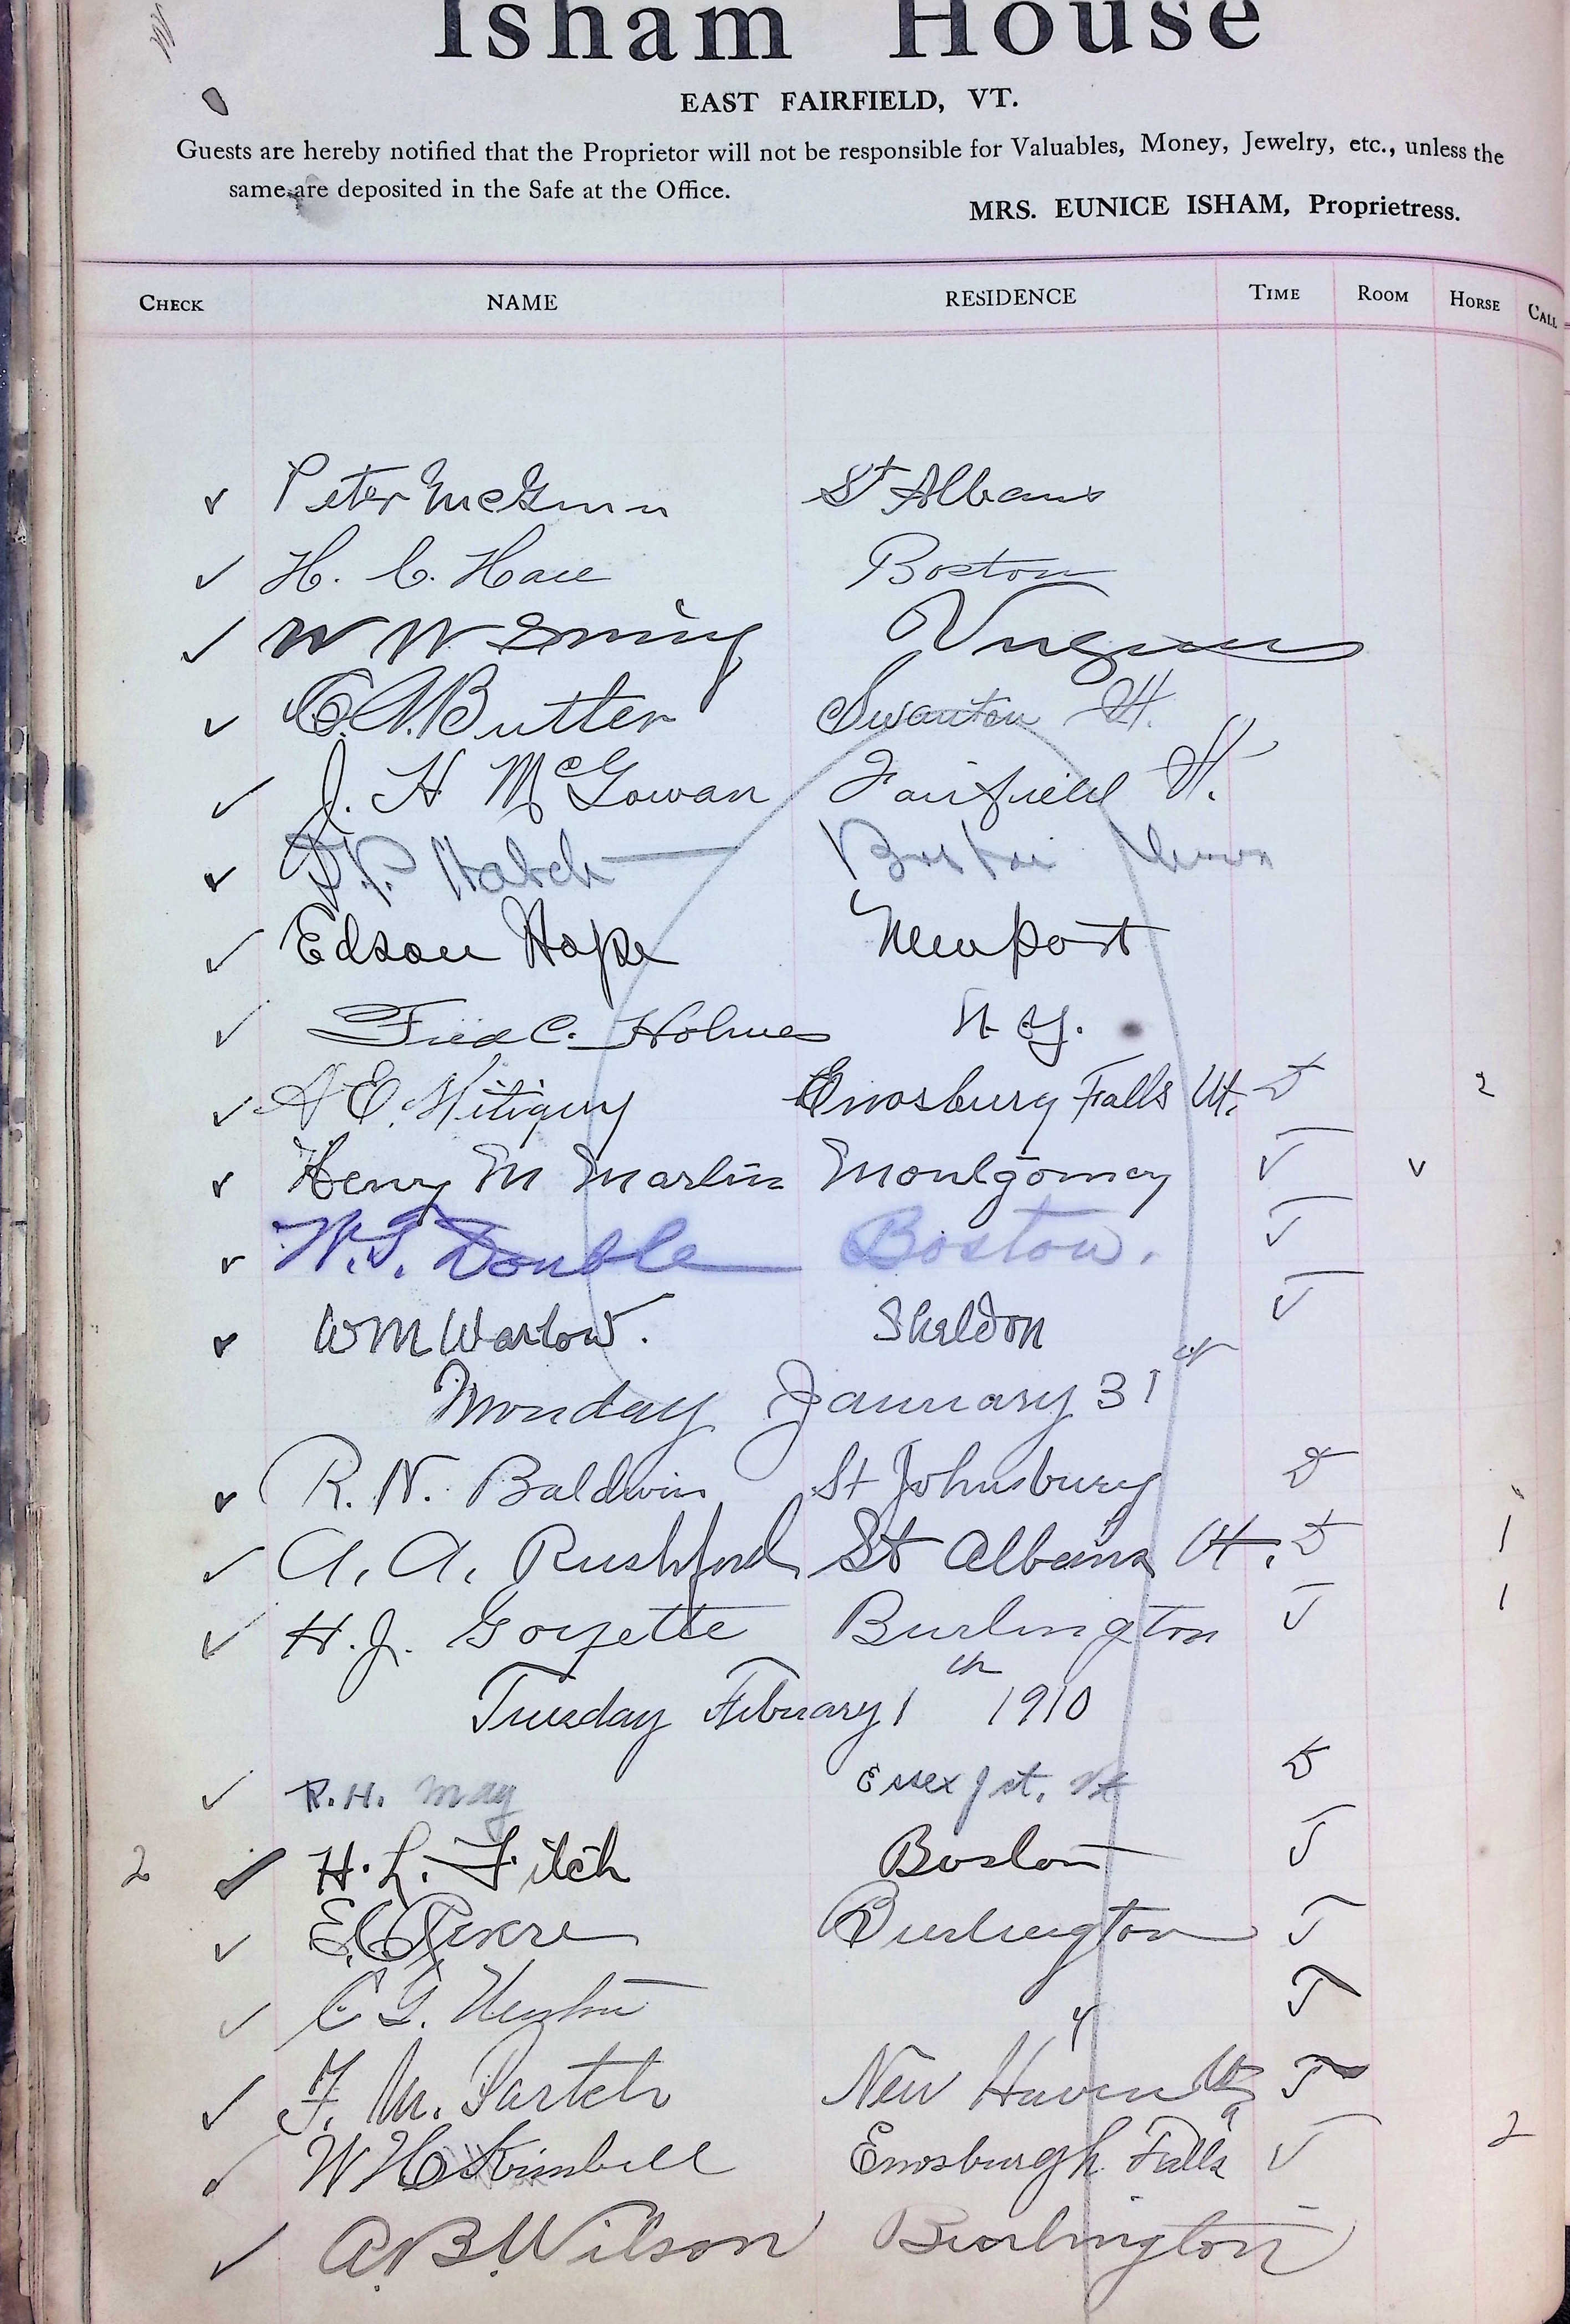 Isham House
EAST FAIRFIELD, VT.
Guests are hereby notified that the Proprietor will not be responsible for Valuables, Money, Jewelry, etc., unless the
same are deposited in the Safe at the Office.
MRS. EUNICE ISHAM, Proprietress.
CHECK NAME RESIDENCE TIME ROOM HORSE CALL
✓ Peter McGinn St Albans
✓ H. C. Hall Boston
✓ W W
✓ C.A. Butler Swanton Vt.
✓ J. H McGowan Fairfield Vt.
✓ Hatch Boston
✓ Edson Hope Newport
✓ Fred C. Holmes N. Y.
✓ A E. Mitiguy Enosburg Falls Vt. D 2
✓ Henry M Martin Montgomery ✓ ✓
✓ W.S. Double Boston.
✓ WM Warlow. Sheldon
Monday January 31st
✓ R. N. Baldwin St Johnsbury D
✓ A. A. Rushford St Albans Vt. D 1
✓ H. J. Goyette Burlington J 1
Tuesday Febuary 1th 1910
✓ R. H. May Essex Jct. Vt D
2 ✓ H. L. Fitch Boston J
✓ E.C. Burlington J
✓ C G. " J
✓ F. M. Partch New Haven Vt J
✓ W H Kimball Enosburgh Falls 2
✓ A.B. Wilson Burlington